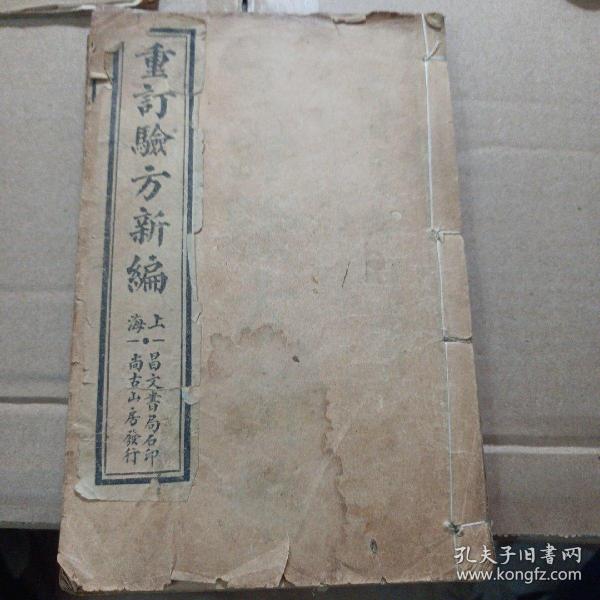 重訂驗方新編
上海
昌文書局石印
尚古山房發行
孔夫子旧書网
www.kongfz.com